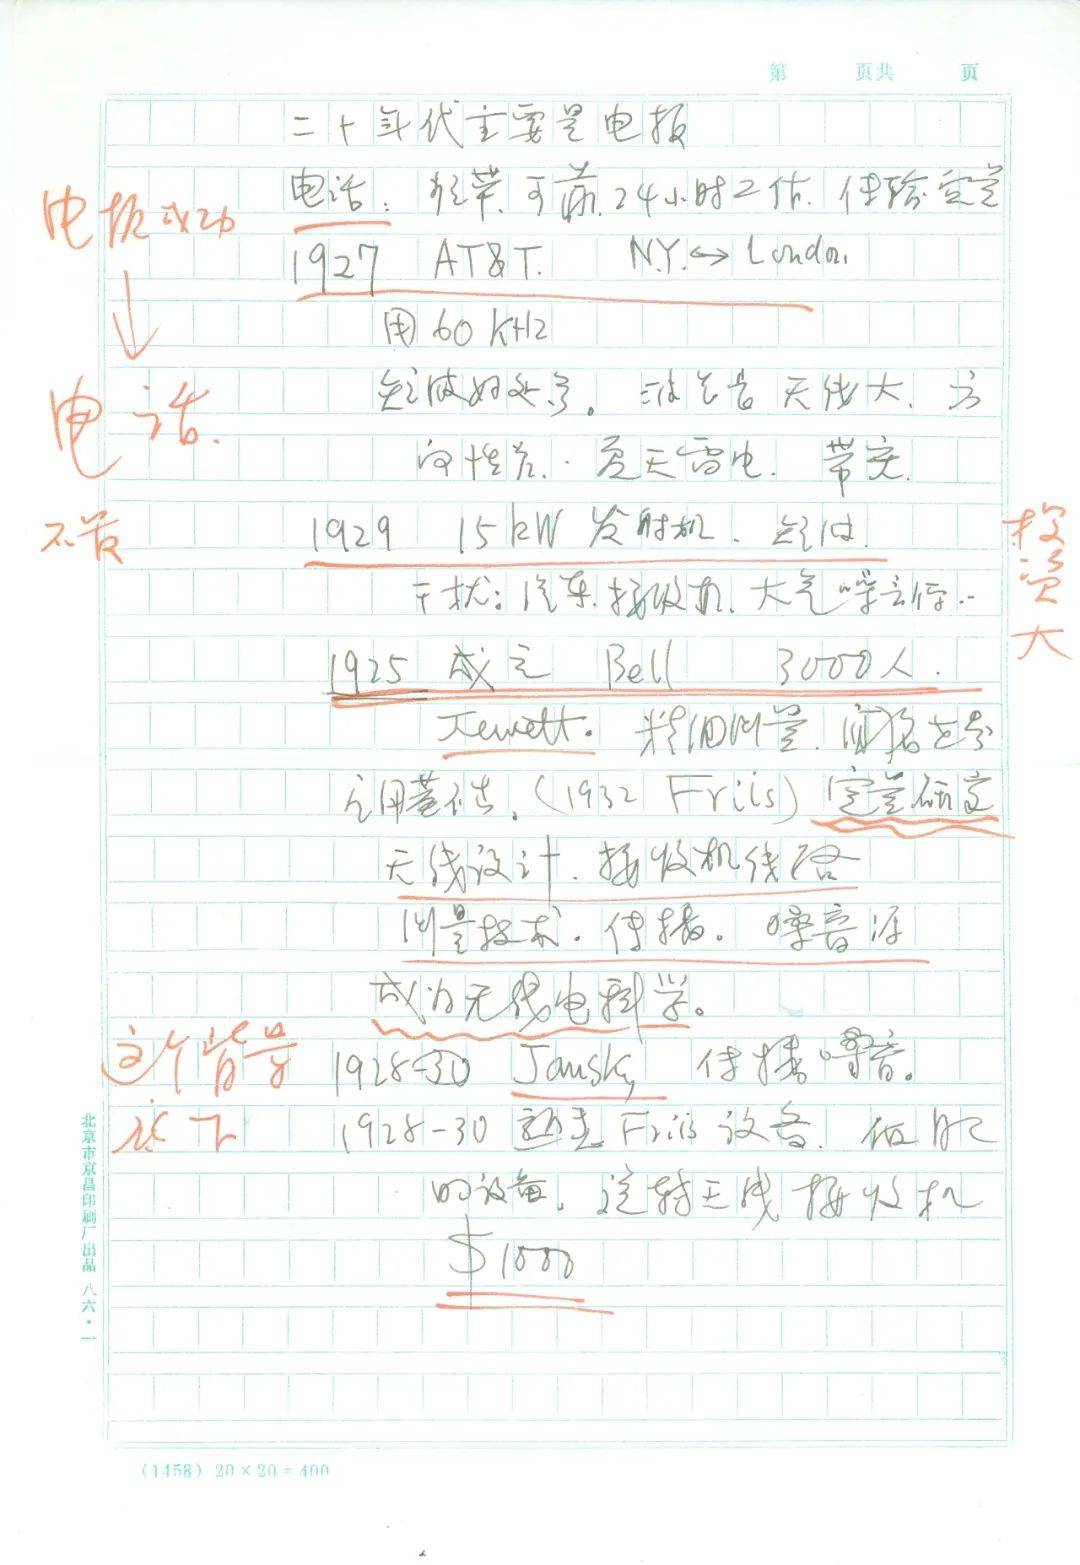 第 页共 页
二十年代主要是电报
电话: 频带, 可靠, 24小时工作. 传输稳定
电报成功
1927 AT&T. N.Y. ↔ London.
用60 KHz
电话.
短波好处多。波长长 天线大. 方
向性差. 夏天雷电. 带宽.
不若
1929 15kW 发射机. 短波
投资大
干扰: 汽车, 接收机. 大气噪音
1925 成立 Bell 3000人.
Jewett. 精细测量.
(1932 Friis) 定量研究
天线设计. 接收机线路
测量技术. 传播. 噪音源
成为无线电科学。
这个背景
1928-30 Jansky 传播噪音。
底下
1928-30 Friis设备.
的设备, 旋转天线 接收机
$1000
北京市京昌印刷厂出品 八六·一
(1458) 20×20=400